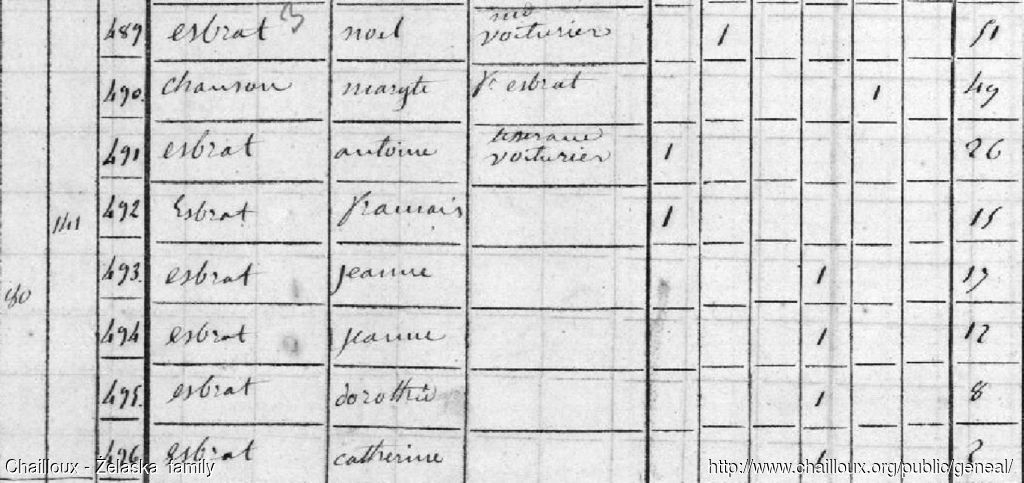 489 esbrat 3 noel voiturier 1 51
490. chanson margte fe esbrat 1 49
491 esbrat antoine voiturier 1 26
141 492 Esbrat francois 1 15
493. esbrat jeanne 1 17
494 esbrat jeanne 1 12
495. esbrat dorothée 1 8
496 esbrat catherine 1 2
Chailloux - Zelaska family
http://www.chailloux.org/public/geneal/